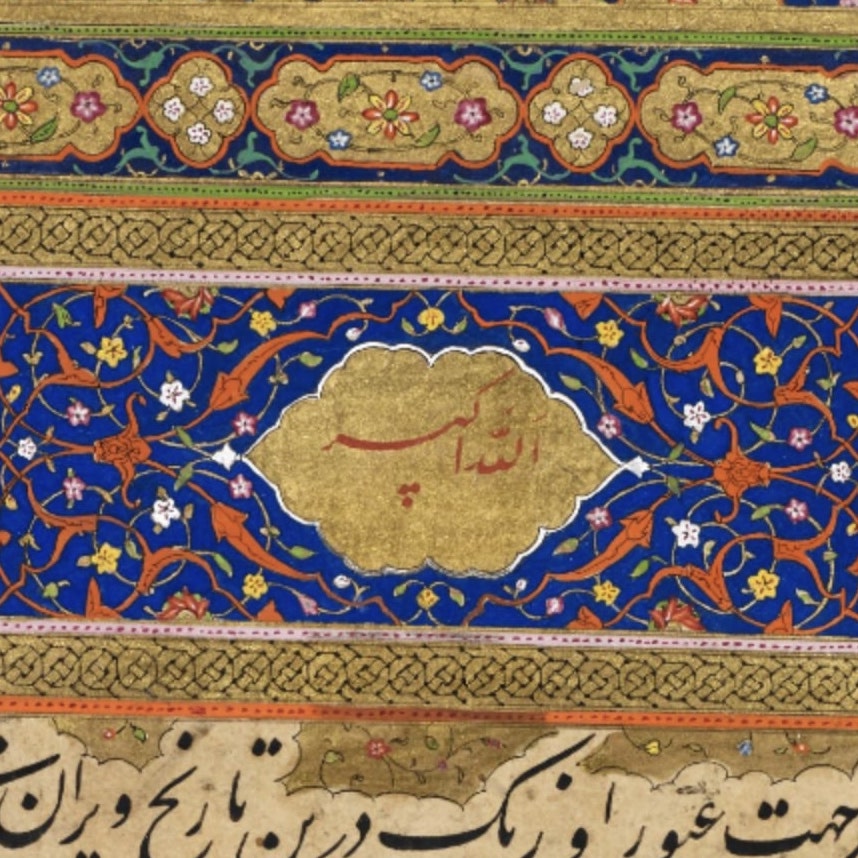 الله اکبر
جهت عبور اوزبک درین تاریخ ویران